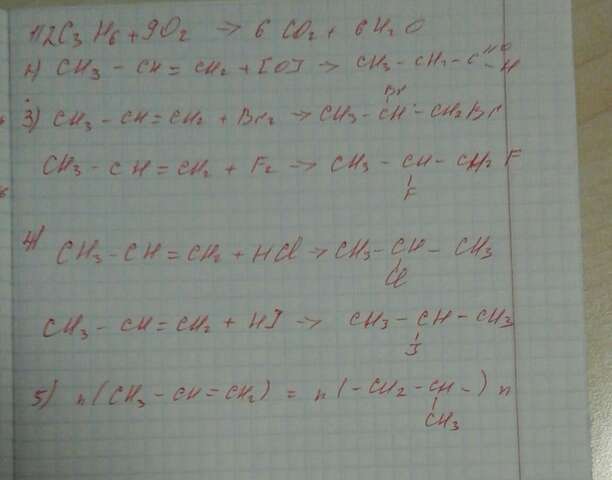 1) 2C3H6 + 9O2 → 6CO2 + 6H2O
2) CH3 - CH = CH2 + [O] → CH3 - CH2 - C =O - H
Br
3) CH3 - CH = CH2 + Br2 → CH3 - CH - CH2Br
CH3 - CH = CH2 + F2 → CH3 - CH - CH2F
F
4) CH3 - CH = CH2 + HCl → CH3 - CH - CH3
Cl
CH3 - CH = CH2 + HJ → CH3 - CH - CH3
J
5) n(CH3 - CH = CH2) = n(-CH2 - CH-)n
CH3